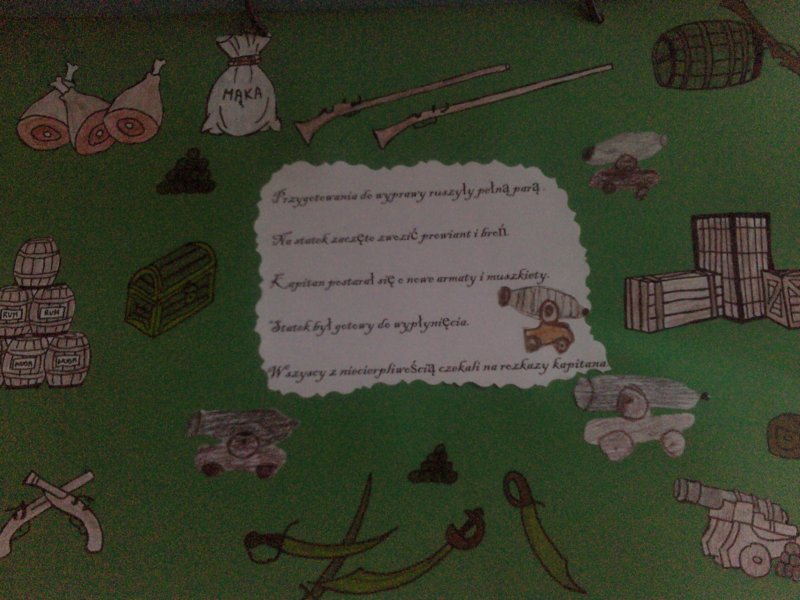 MĄKA
Przygotowania do wyprawy ruszyły pełną parą.
Na statek zaczęto zwozić prowiant i broń.
Kapitan postarał się o nowe armaty i muszkiety.
Statek był gotowy do wypłynięcia.
Wszyscy z niecierpliwością czekali na rozkazy kapitana
RUM
RUM